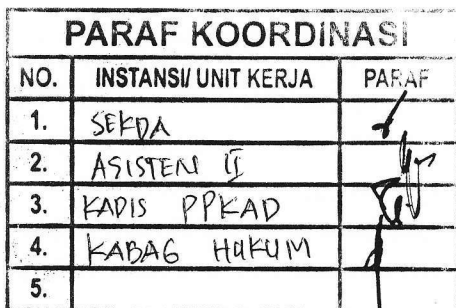 PARAF KOORDINASI
NO. INSTANSI/ UNIT KERJA PARAF
1. SEKDA
2. ASISTEN II
3. KADIS PPKAD
4. KABAG HUKUM
5.